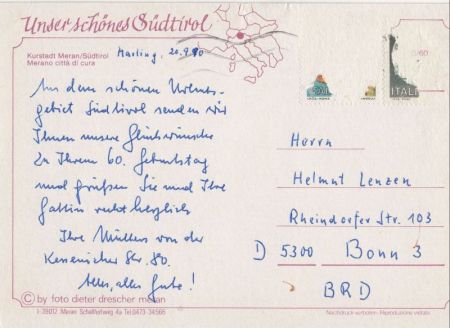 Unser schönes Südtirol
Kurstadt Meran/Südtirol
Merano città di cura
Marling, 20.9.90
Aus dem schönen Urlaubs-
gebiet Südtirol senden wir
Ihnen unsere Glückwünsche
zu Ihrem 60. Geburtstag
und grüßen Sie und Ihre
Gattin recht herzlich
Ihre Müllers von der
Kessenicher Str. 80.
Alles, alles Gute!
© by foto dieter drescher meran
I-39012 Meran Schafferweg 4a Tel.0473-34566
ITALI
Herrn
Helmut Lenzen
Rheindorfer Str. 103
D 5300 Bonn 3
BRD
Nachdruck verboten - Riproduzione vietata